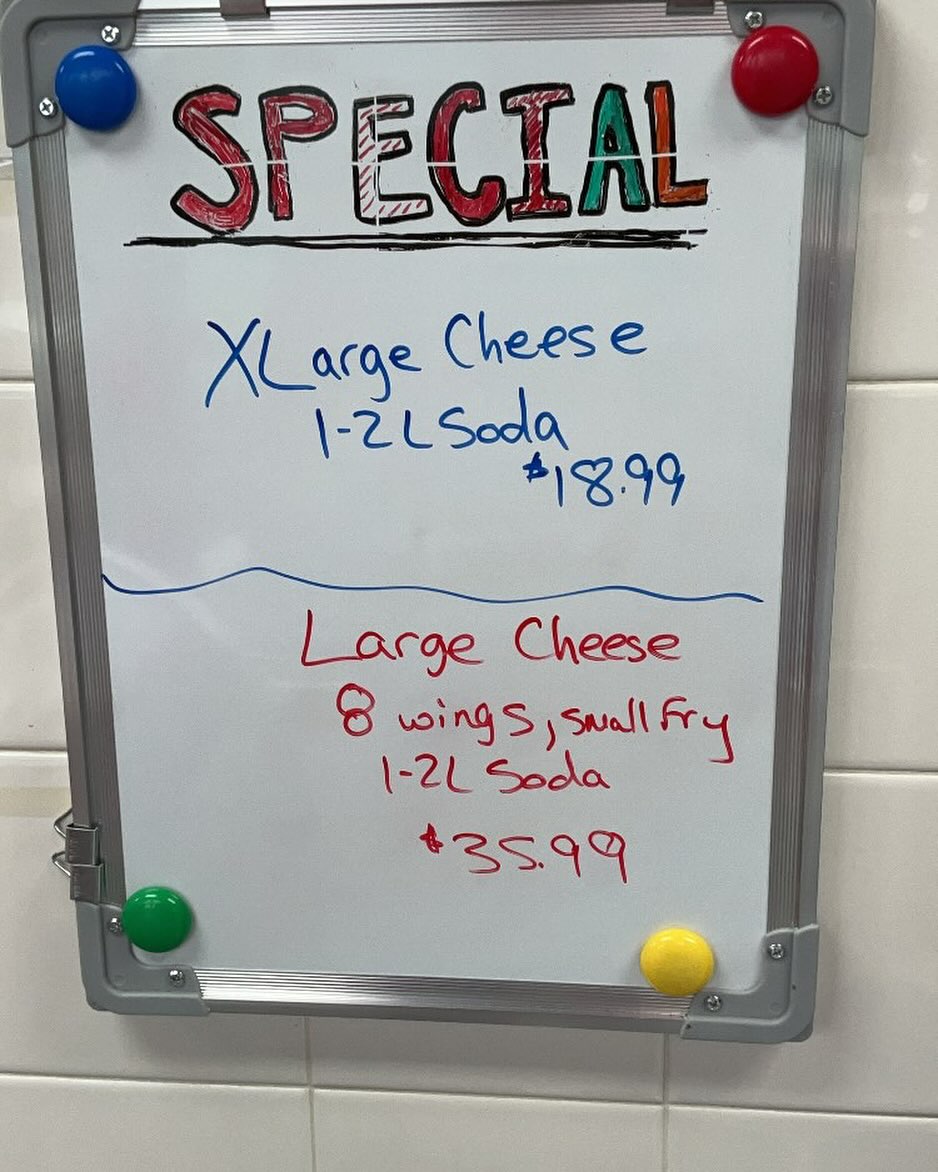 SPECIAL
XLarge Cheese
1-2L Soda
$18.99
Large Cheese
8 wings, small Fry
1-2L Soda
$35.99